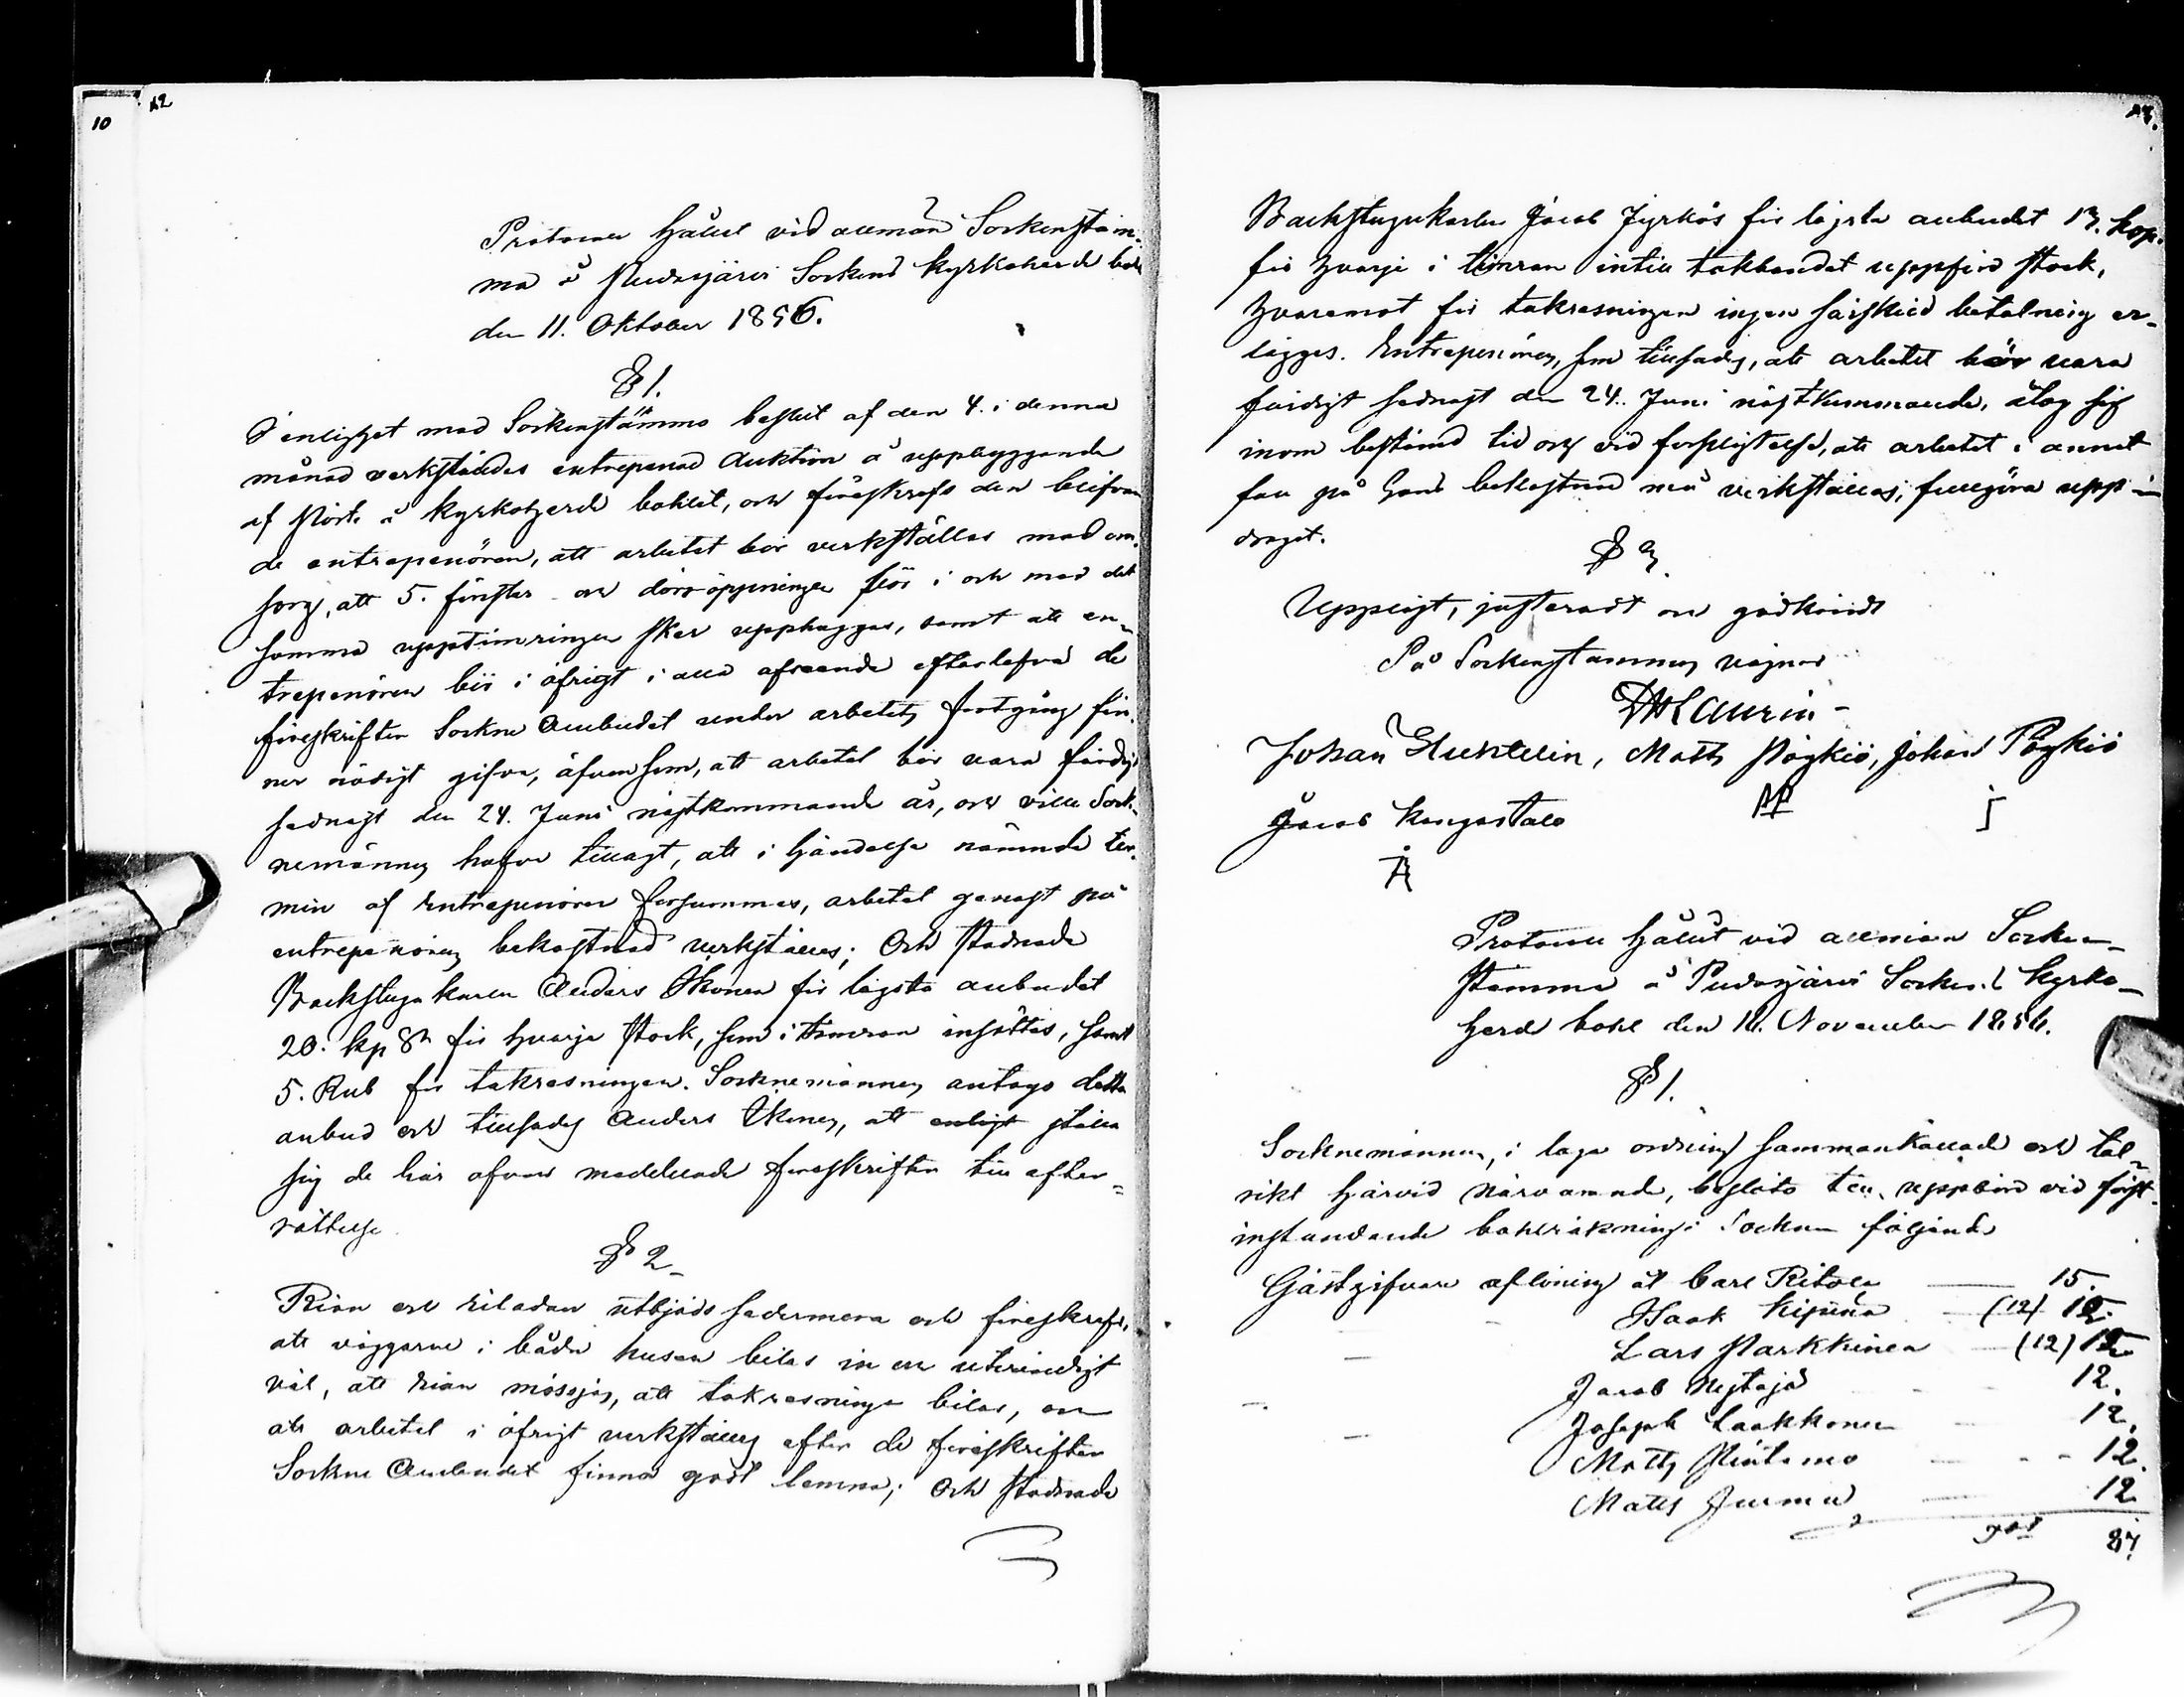 10
12
Protocoll hållet vid allmän Sockenstäm-
ma å Pudasjärvi Sockens kyrkoherde bohl
den 11. Oktober 1856.
§ 1.
I enlighet med Sockenstämmo beslut af den 4. i denna
månad verkställdes entreprenad Auktion å uppbyggande
af Pörte å kyrkoherde bohlet, och föreskrefs den blifvan
de entreprenören, att arbetet bör verkställas med om-
sorg, att 5. fönster och dörröppningar i och med det
samma upptimringen sker upphuggas, samt att en-
treprenören bör i öfrigt i alla afseende efterlefva de
föreskrifter Sockne Ombudet under arbetets fortgång fin-
ner nödigt gifva, äfvensom, att arbetet bör vara färdigt
sednast den 24. Juni nästkommande år, och ville Sock-
nemännen hafva tillagt, att i händelse nämnde ter-
min af Entreprenören försummas, arbetet genast på
entreprenörens bekostnad verkställes; Och stadnade
Backstugukarlen Anders Ikonen för lägsta anbudet
20. kop Sr för hvarje stock, som i timran insättes, samt
5. Rub för takresningen. Socknemännen antogo detta
anbud och tillsades Anders Ikonen, att enligt ställa
sig de här ofvan meddelade föreskrifter till efter-
rättelse.
§ 2
Rian och riladan utbjöds sedermera och föreskrefs,
att väggarne i båda husen bilas in och utvändigt
väl, att rian mossjas, att takresningen bilas, och
att arbetet i öfrigt verkställes efter de föreskrifter
Sockne Ombudet finna godt lemna; Och stadnade
Backstugukarlen Jacob Jyrkäs för lägsta anbudet 13. kop.
för hvarje i timran intill takbandet uppförd stock,
hvaremot för takresningen ingen särskild betalning er-
lägges. Entreprenören, som tillsades, att arbetet bör vara
färdigt sednast den 24. Juni nästkommande, åtog sig
inom bestämd tid och vid förpligtelse, att arbetet i annat
fall på hans bekostnad må verkställas, fullgöra upp-
draget.
§ 3.
Uppläst, justeradt och godkändt
På Sockenstämmans vägnar
Laurin
Johan Huhtelin, Matts Pöykiö, Johan Pöykiö
Jacob Kangastalo
Protocoll hållit vid allmän Socken-
stämma å Pudasjärvi Sockens kyrko-
herde bohl den 16. November 1856.
§ 1.
Socknemännen, i laga ordning sammankallade och tal-
rikt härvid närvarande, beslöto till uppbörd vid först
instundande bohlräkning i Socknen följande
Gästgifvare aflöning åt Carl Ritola 15.
Isaak Kipinä (12) 12.
Lars Parkkinen (12) 12
Jacob 12.
Joseph Laakkonen 12.
Matts 12.
Matts Jurmu 12
87.